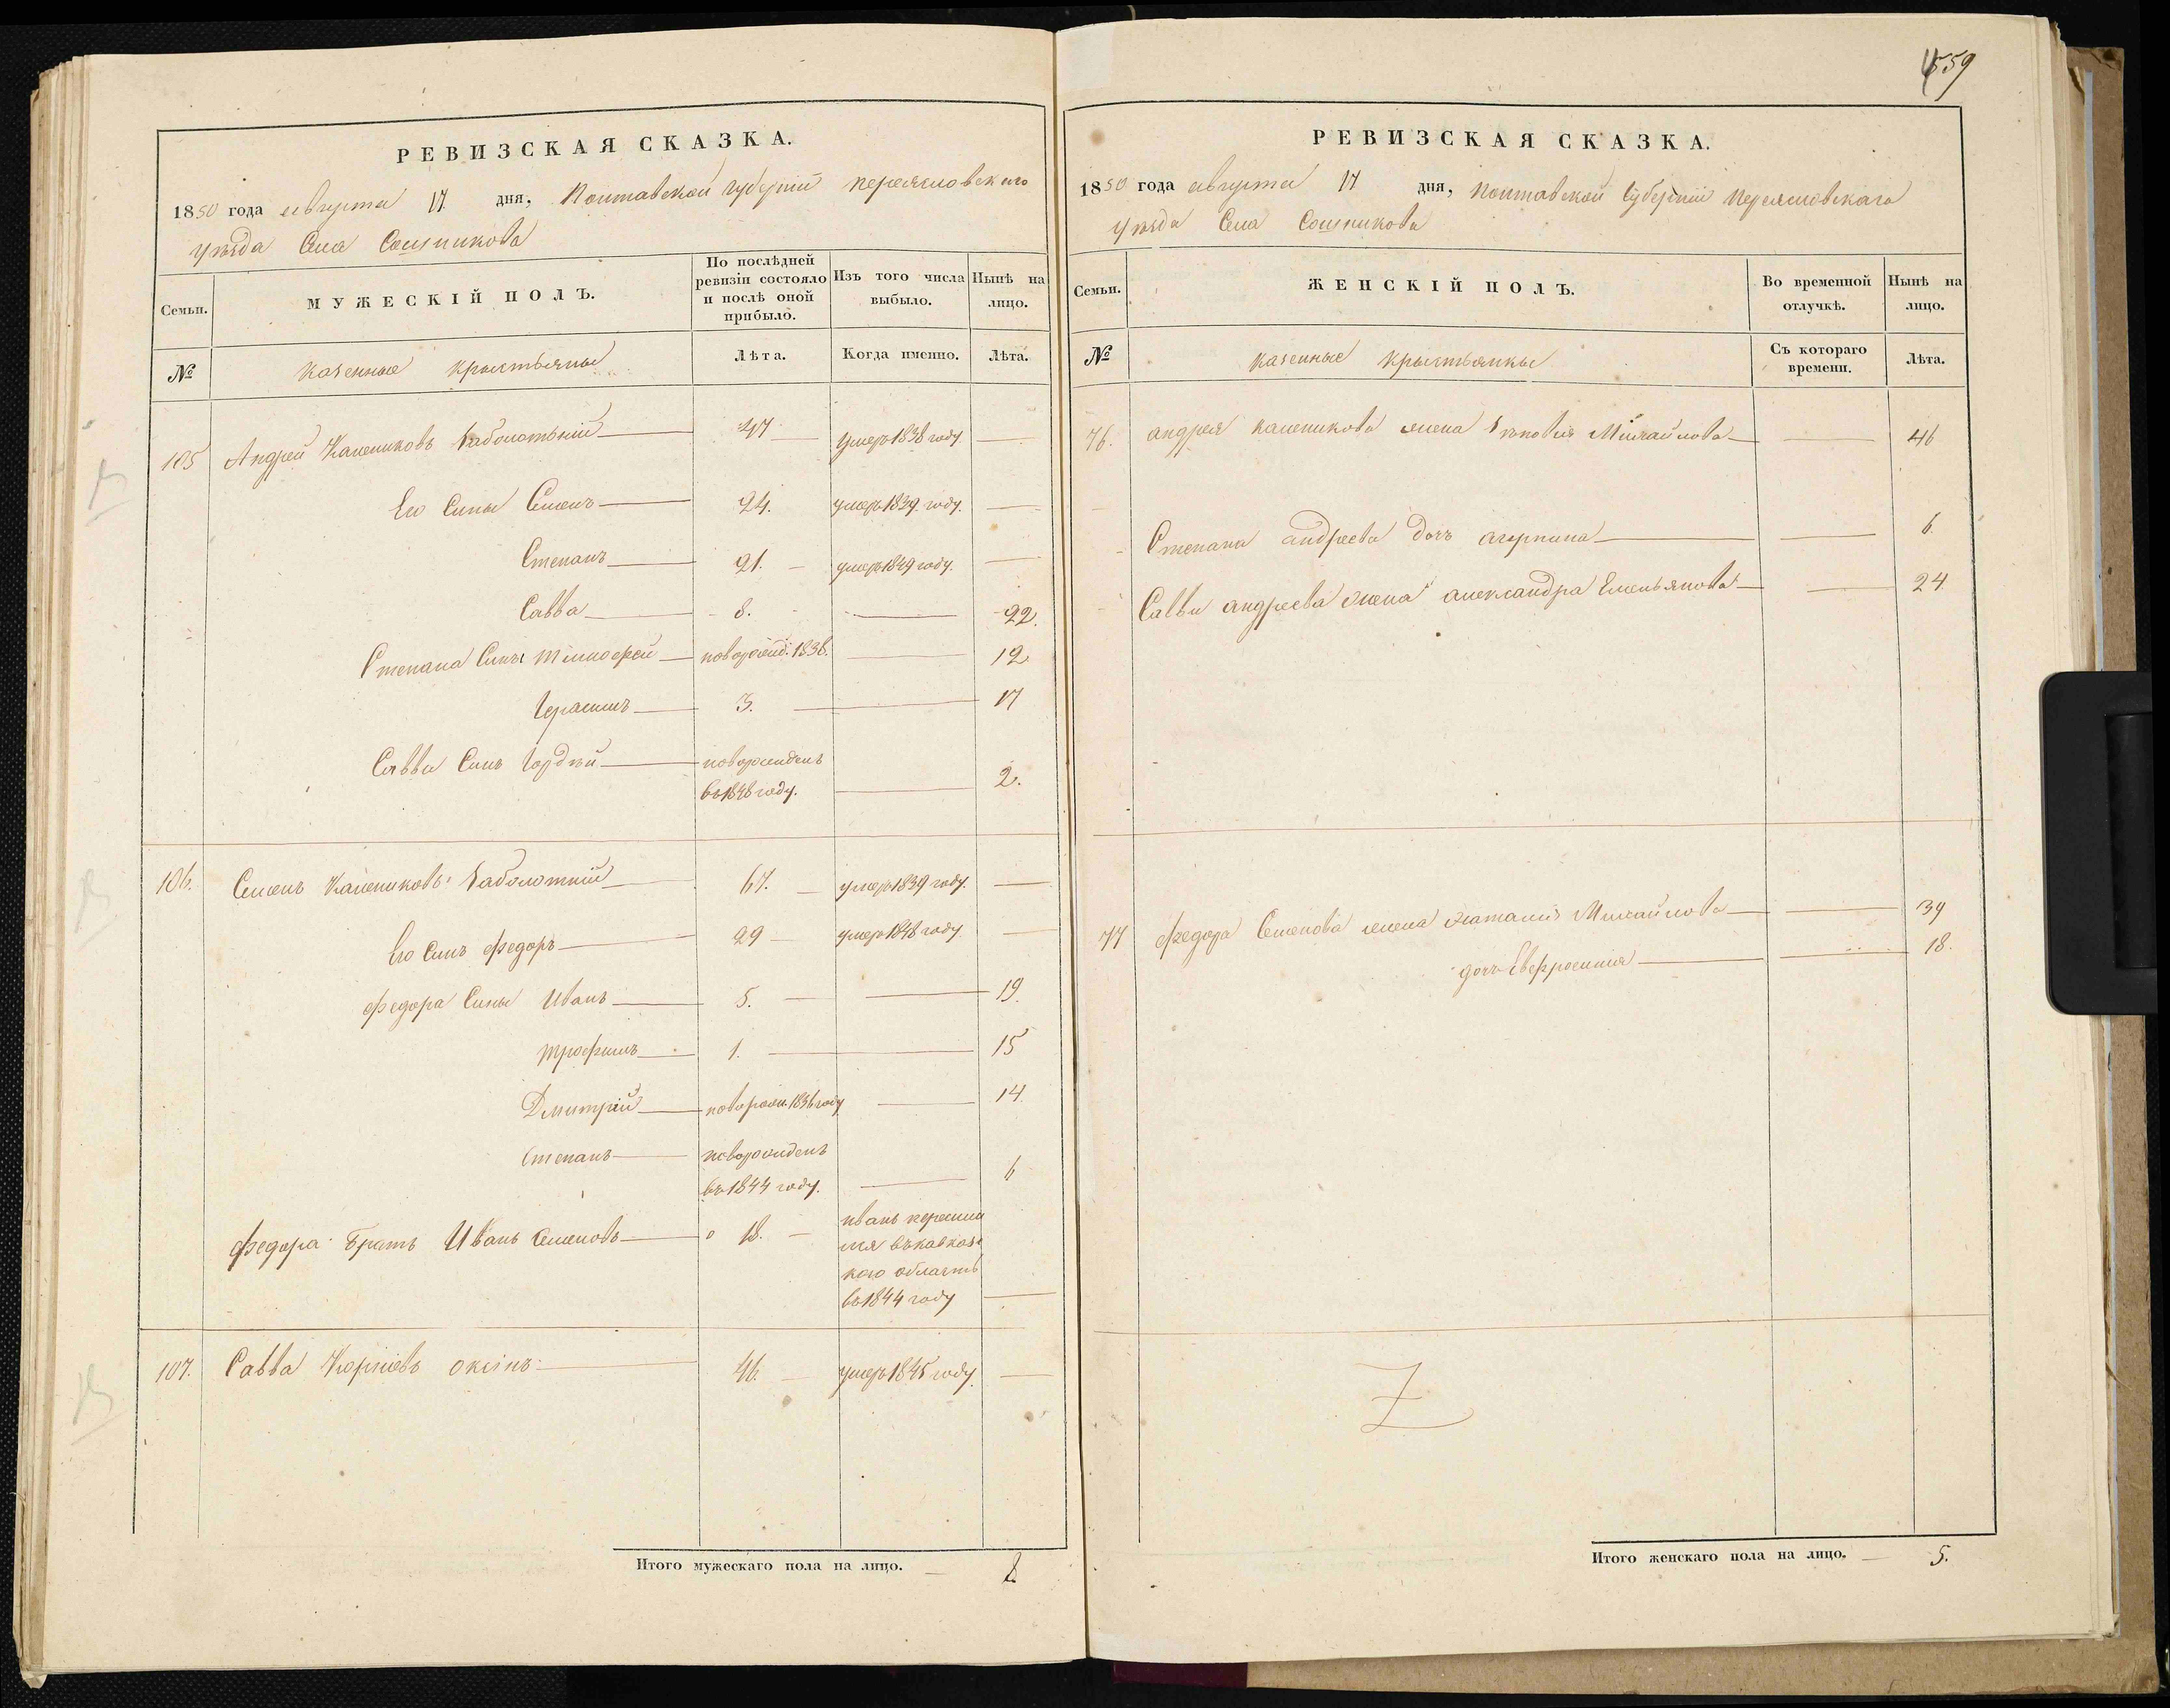 559
РЕВИЗСКАЯ СКАЗКА.
1850 года августа 17 дня, Полтавской губерніи переясловского
уѣзда Села Сошникова
Семьи.
МУЖЕСКІЙ ПОЛЪ.
По послѣдней ревизіи состояло и послѣ оной прибыло.
Изъ того числа выбыло.
Нынѣ на лицо.
№
казенные крыстьяны
Лѣта.
Когда именно.
Лѣта.
105 Андрей Калениковъ Заболотьній 47 умеръ 1838 году
Его Сины Семенъ 24. умеръ 1839 году.
Степанъ 21. умеръ 1849 году.
Савва 8. 22.
Степана Синъ Тимофей новорожд: 1838. 12
Герасимъ 3. 17
Саввы Синъ Гордѣй новорожденъ
въ 1848 году. 2.
106. Семенъ Калениковъ Заболотній 67. умеръ 1839 году.
Его Синъ Федоръ 29 умеръ 1848 году
Федора Сины Иванъ 5. 19.
Трофимъ 1. 15
Дмитрій новорож. 1836 году 14.
Степанъ новорожденъ
въ 1844 году. 6
Федора братъ Иванъ Семеновъ 18. иванъ пересили
лся въ кавказ
кою область
въ 1844 году
107. Савва Корніевъ окинъ 46. умеръ 1845 году
Итого мужескаго пола на лицо. 8.
РЕВИЗСКАЯ СКАЗКА.
1850 года августа 17 дня, Полтавской Губерніи Переясловскаго
уѣзда Села Сошникова
Семьи.
ЖЕНСКІЙ ПОЛЪ.
Во временной отлучкѣ.
Нынѣ на лицо.
№
казенные крыстьянкы
Съ котораго времени.
Лѣта.
76. андрея каленикова жена Зѣновія Михайлова 46
Степана андреева дочь агрипина 6
Саввы андреева жена александра Емельянова 24
77 Федора Семенова жена Наталия Михайлова 39
дочь Евфросиния 18.
Итого женскаго пола на лицо. 5.